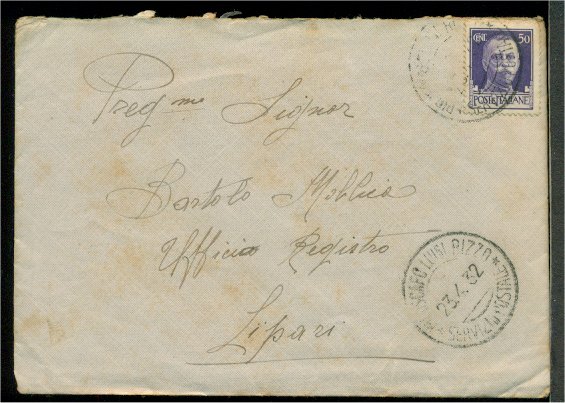 CENT. 50
POSTE ITALIANE
Preg.mo Signor
Bartolo
Ufficio Registro
Lipari
PIROSCAFO LUIGI RIZZO
23.4.32
SERVIZIO POSTALE